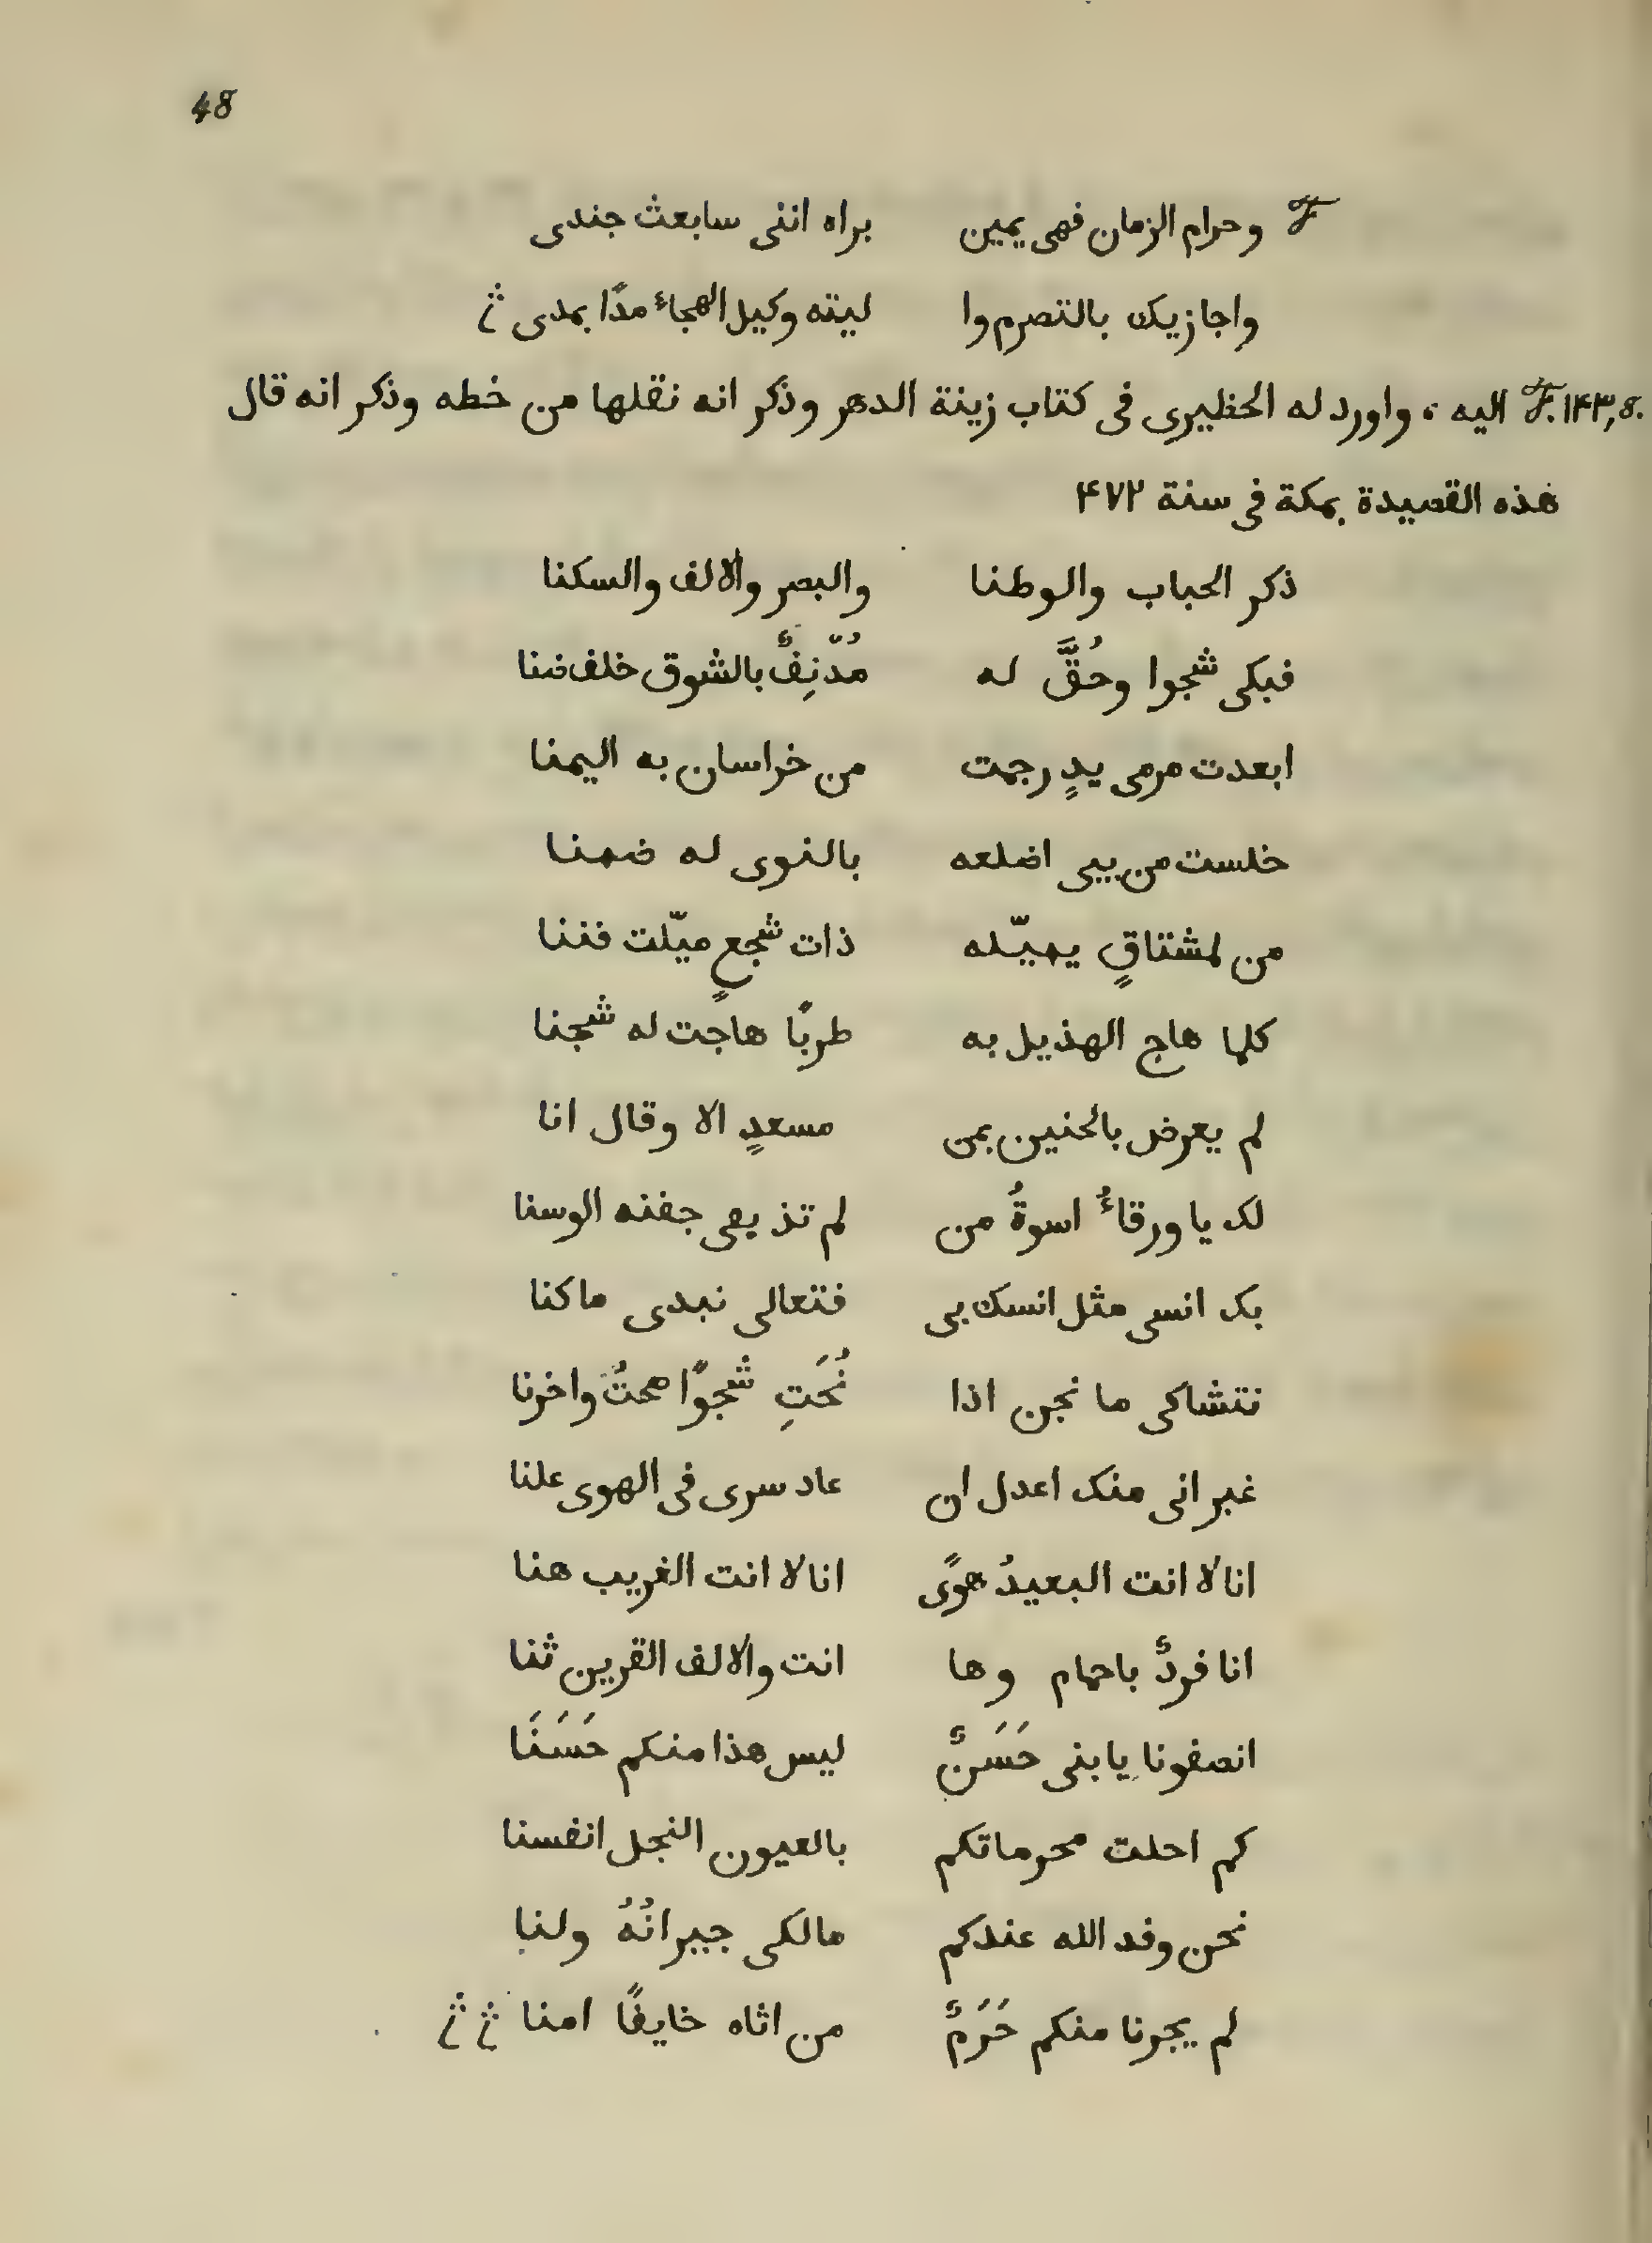 48
F وحرام الزمان فهى يمين براه اننى سابعث جندى
واجازيك بالتصرم وا ليته وكيل الهجاء مدّا بمدى
F. ١۴٣,8. اليه ، واورد له الحظيرى فى كتاب زينة الدهر وذكر انه نقلها من خطه وذكر انه قال
هذه القصيدة بمكة فى سنة ۴٧٢
ذكر الحباب والوطنا والبصر والالف والسكنا
فبكى شجوا وحُقَّ له مُدّنِفٌ بالشوق خلف ضنا
ابعدت مرمى يدٍ رجمت من خراسان به اليمنا
خلست من بيى اضلعه بالنوى له ضمنا
من لمشتاقٍ يميّله ذات شجعٍ ميّلت فننا
كلما هاج الهذيل به طربًا هاجت له شجنا
لم يعرض بالحنين بمن مسعدٍ الا وقال انا
لك يا ورقاءُ اسوةُ من لم تذيقى جفنه الوسنا
بك انسى مثل انسك بى فتعالى نبدى ما كنا
نتشاكى ما نجن اذا نُحَتِ شجوًا صحتُ واخرنا
غبر انى منك اعدل ان عاد سرى فى الهوى علنا
انا لا انت البعيدُ هوًى انا لا انت الغريب هنا
انا فردٌ باحمام وها انت والالف القرين ثنا
انصفونا يا بنى حَسَنٌ ليس هذا منكم حَسَنَا
كم احلت محرماتكم بالعيون النجل انفسنا
نحن وفد الله عندكم مالكى جيرانُهُ ولنا
لم يجرنا منكم حَرَمٌ من اتاه خايفًا امنا